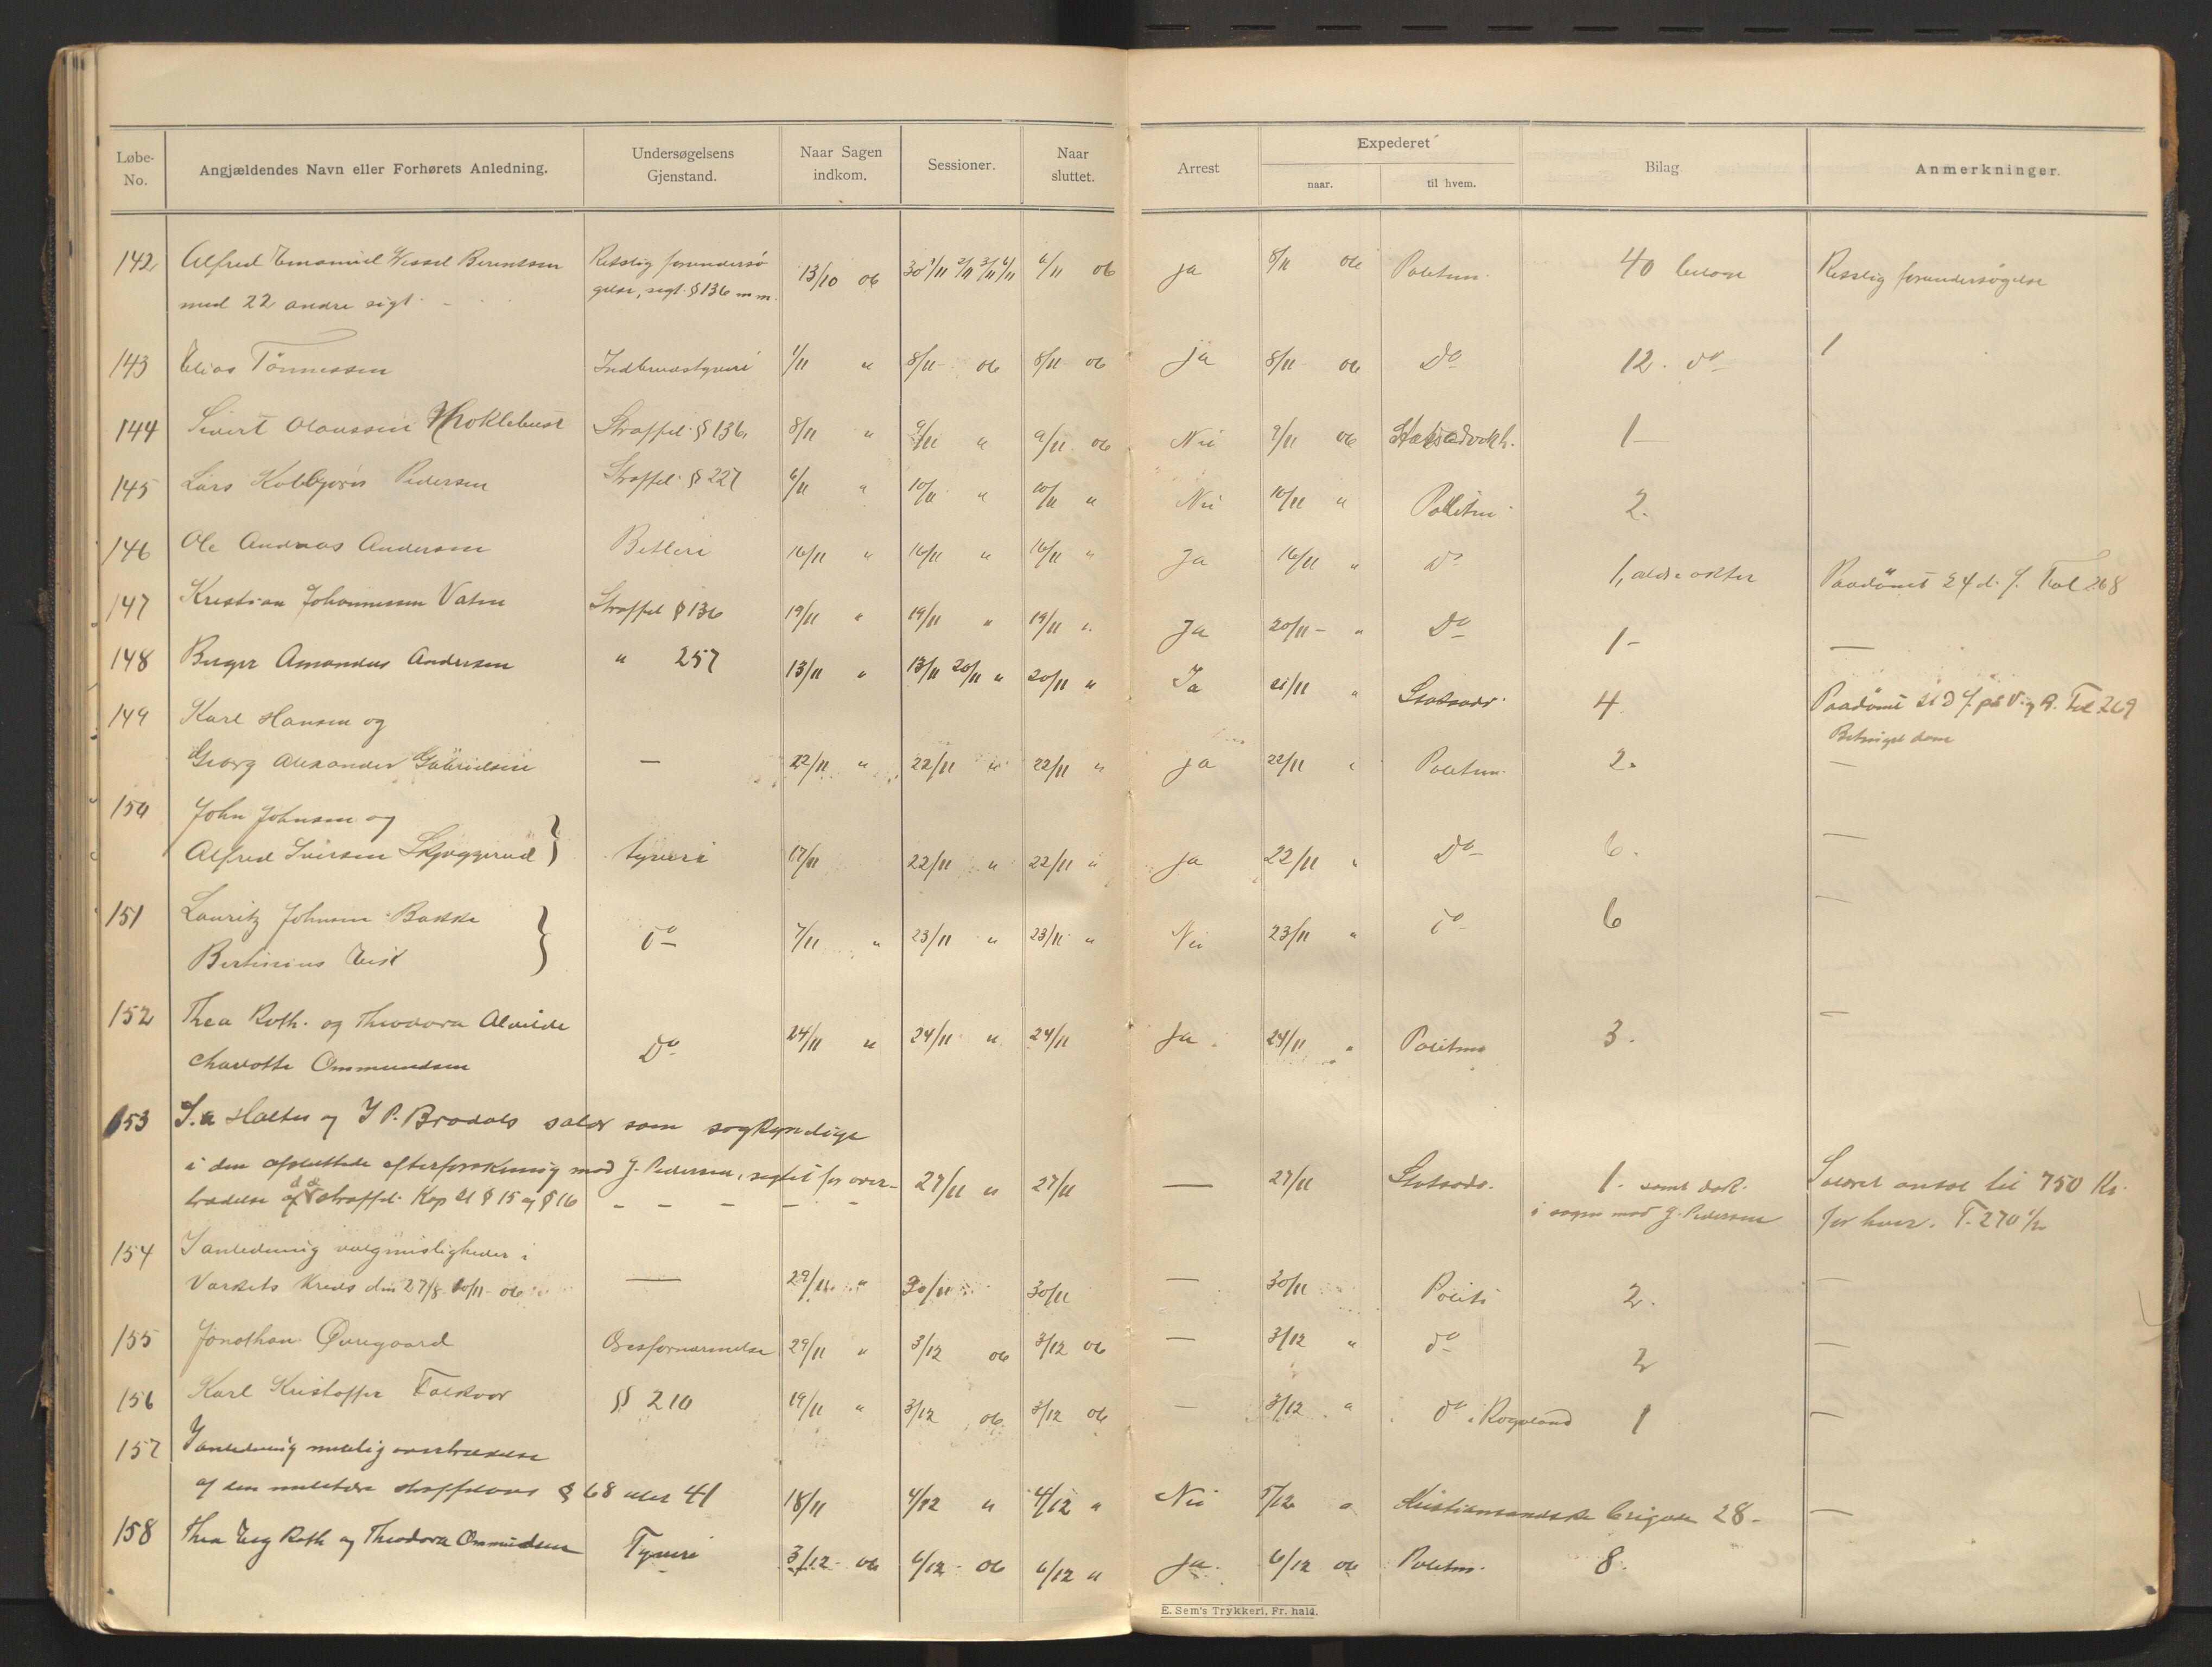 Løbe-No. Angjældendes Navn eller Forhørets Anledning. Undersøgelsens Gjenstand. Naar Sagen indkom. Sessioner. Naar sluttet. Arrest Expederet naar. til hvem. Bilag Anmerkninger.
142 Alfred Emanuel Wessel Berentsen Retslig forundersø 13/10 06 30 1/11 2/11 3/11 6/11 6/11 06 ja 8/11 06 Politm. 40 bilage Retslig forundersøgelse
med 22 andre sigt. gelse, sigt. § 136 m m.
143 Elias Tönnessen Indbrudstyveri 1/11 " 8/11 - 06 8/11 - 06 ja 8/11 06 Do 12. do 1
144 Sivert Olaussen Straffel. § 136. 8/11 " 9/11 " 9/11 06 Nei 9/11 06 Statsadvokt. 1 -
145 Lars Kolbjørn Pedersen Straffel. § 227 6/11 " 10/11 " 10/11 " Nei 10/11 " Politm 2.
146 Ole Andreas Andersen Betleri 16/11 " 16/11 " 16/11 " Ja 16/11 " Do 1, ældre akter Paadömt 24 d. f. Fol 268
147 Kristian Johannessen Vatne Straffel § 136 19/11 " 19/11 " 19/11 " Ja 20/11 - " Do 1 - —
148 Birger Amandus Andersen " 257 13/11 " 13/11 20/11 " 20/11 " Ja 21/11 " Statsadv. 4. Paadömt 21 D f. på V. og B. Fol 269
Betinget dom
149 Karl Hansen og
Georg Alexander Gabrielsen — 22/11 " 22/11 " 22/11 " ja 22/11 " Politm. 2. —
150 John Johnsen og
Alfred Iversen Skjæggerud } tyveri 17/11 22/11 " 22/11 " ja 22/11 " Do - 6. —
151 Lauritz Johnsen Bakke
Bertinius } do 7/11 " 23/11 " 23/11 " Nei 23/11 " do 6 —
152 Thea Roth. og Theodora Alvilde
Charlotte Ommundsen Do 24/11 " 24/11 " 24/11 Ja. 24/11 " Politm 3. —
153 og I P. Brodals salær som sagkyndige
i den afsluttede efterforskning mod J. Pedersen, sigtet for over- 27/11 " 27/11 — 27/11 Statsadv. 1. samt dok. Salæret ansat til 750 Kr.
trædelse af straffel. Kap 21 § 15 og § 16 - - - - - i sagen mod J. Pedersen for hver. F. 270 1/2
154 I anledning valgmisligheder i
Varkets Kreds den 27/8 10/11 - 06 — 29/11 " 30/11 30/11 — 30/11 Politi 2. —
155 Jonathan Øvregaard Æresfornærmelse 29/11 " 3/12 06 3/12 06 — 3/12 " do 2 —
156 Karl Kristoffer Falkvor §§ 210 19/11 " 3/12 06. 3/12 06 - 3/12 " do i Rogaland 1 —
157 I anledning mulig overtrædelse
af den militære straffelovs § 68 eller 41 18/11 4/12 " 4/12 " Nei 5/12 " Kristiansandske brigade 28 - —
158 Thea Roth og Theodora Ommundsen Tyveri 3/12 - 06 6/12 - 06 6/12 " ja. 6/12 06 Politm. 8.
E. Sem's Trykkeri, Fr.hald.